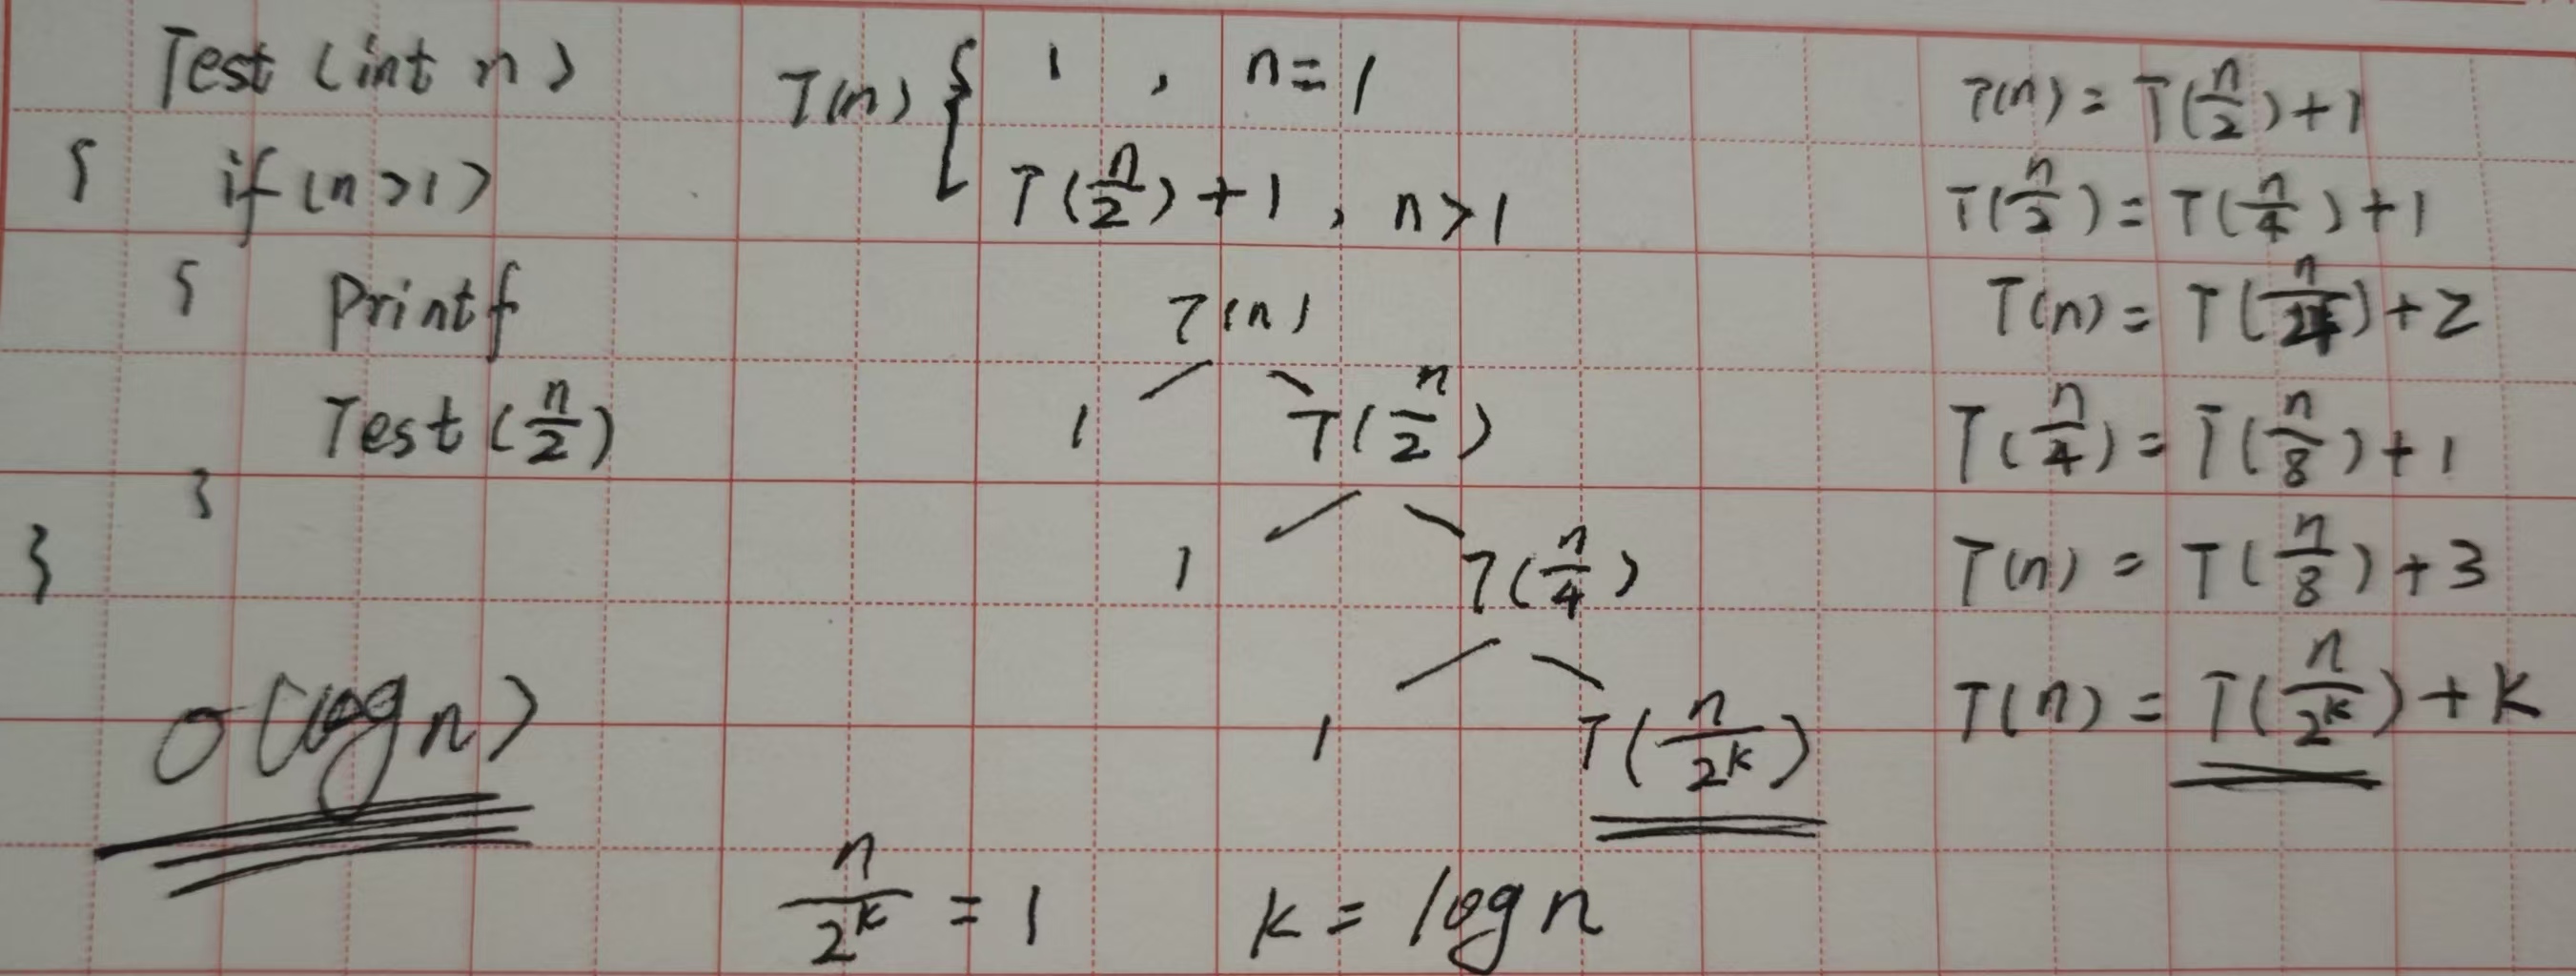 Test (int n)
{ if (n>1)
{ printf
Test (n/2)
}
}
O(log n)
T(n) { 1 , n=1
T(n/2)+1 , n>1
T(n)
1 T(n/2)
1 T(n/4)
1 T(n/2^k)
n/2^k = 1 k = log n
T(n) = T(n/2)+1
T(n/2) = T(n/4)+1
T(n) = T(n/4)+2
T(n/4) = T(n/8)+1
T(n) = T(n/8)+3
T(n) = T(n/2^k)+k